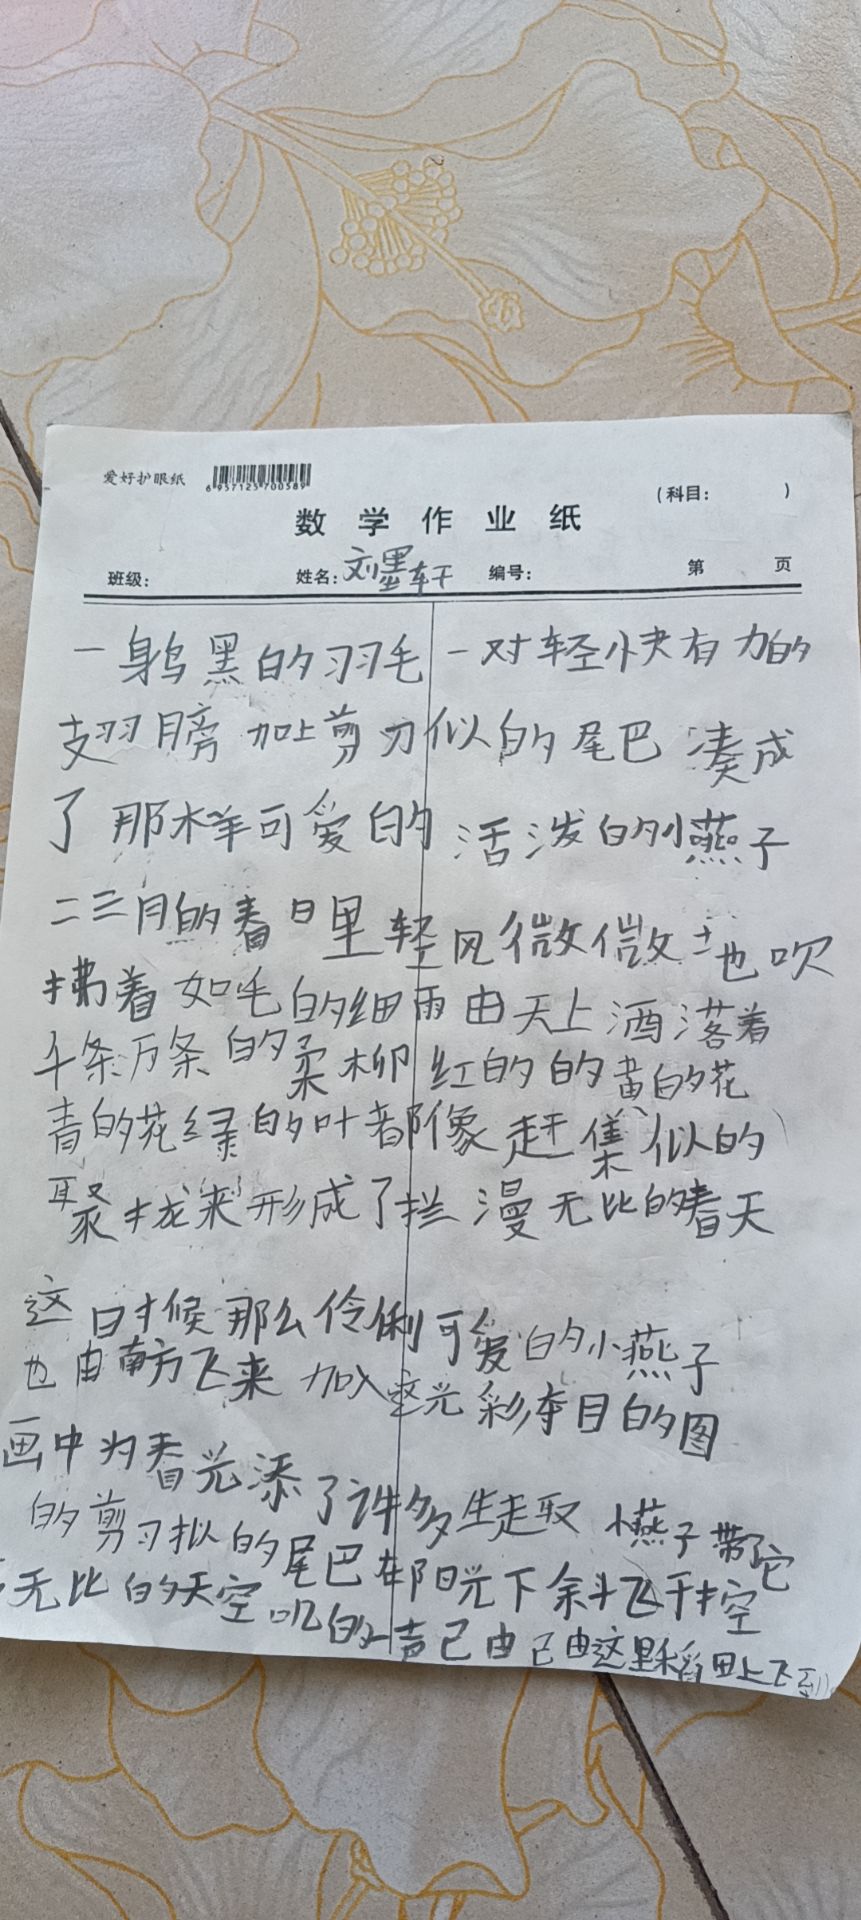 爱好护眼纸
6 957125 700589
(科目: )
数学作业纸
班级: 姓名:刘墨轩 编号: 第 页
一身乌黑的羽毛一对轻快有力的
翅膀加上剪刀似的尾巴凑成
了那样可爱的活泼的小燕子
二三月的春日里轻风微微地吹
拂着如毛的细雨由天上洒落着
千条万条的柔柳红的的黄的花
青的花绿的叶都像赶集似的
聚拢来形成了拦漫无比的春天
这时候那么伶俐可爱的小燕子
也由南方飞来加入这光彩夺目的图
画中为春光添了许多生趣小燕子带了它
的剪刀拟的尾巴在阳光下斜飞于
无比的天空叽的一声已由已由这里稻田上飞到